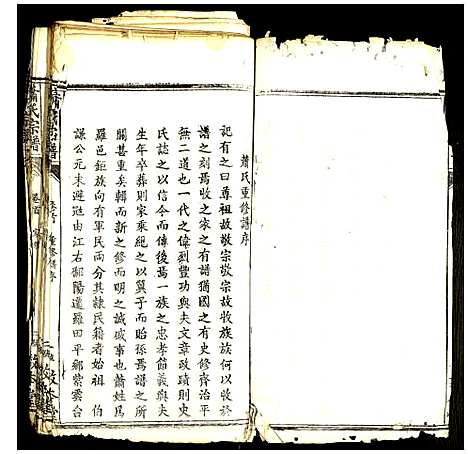 蕭氏重修譜序
記有之曰尊祖故敬宗敬宗故收族族何以收於
譜之刻焉收之家之有譜猶國之有史修齊治平
無二道也一代之偉烈豐功與夫文章政蹟則史
氏誌之以信今而傳後焉一族之忠孝節義與夫
生年卒葬則家乘紀之以翼子而貽孫焉譜之所
關甚重矣輯而新之修而明之誠盛事也蕭姓爲
羅邑鉅族向有軍民兩分其隸民籍者始祖伯
謙公元末避寇由江右鄱陽遷羅田平鄉紫雲台
蕭氏宗譜
卷首